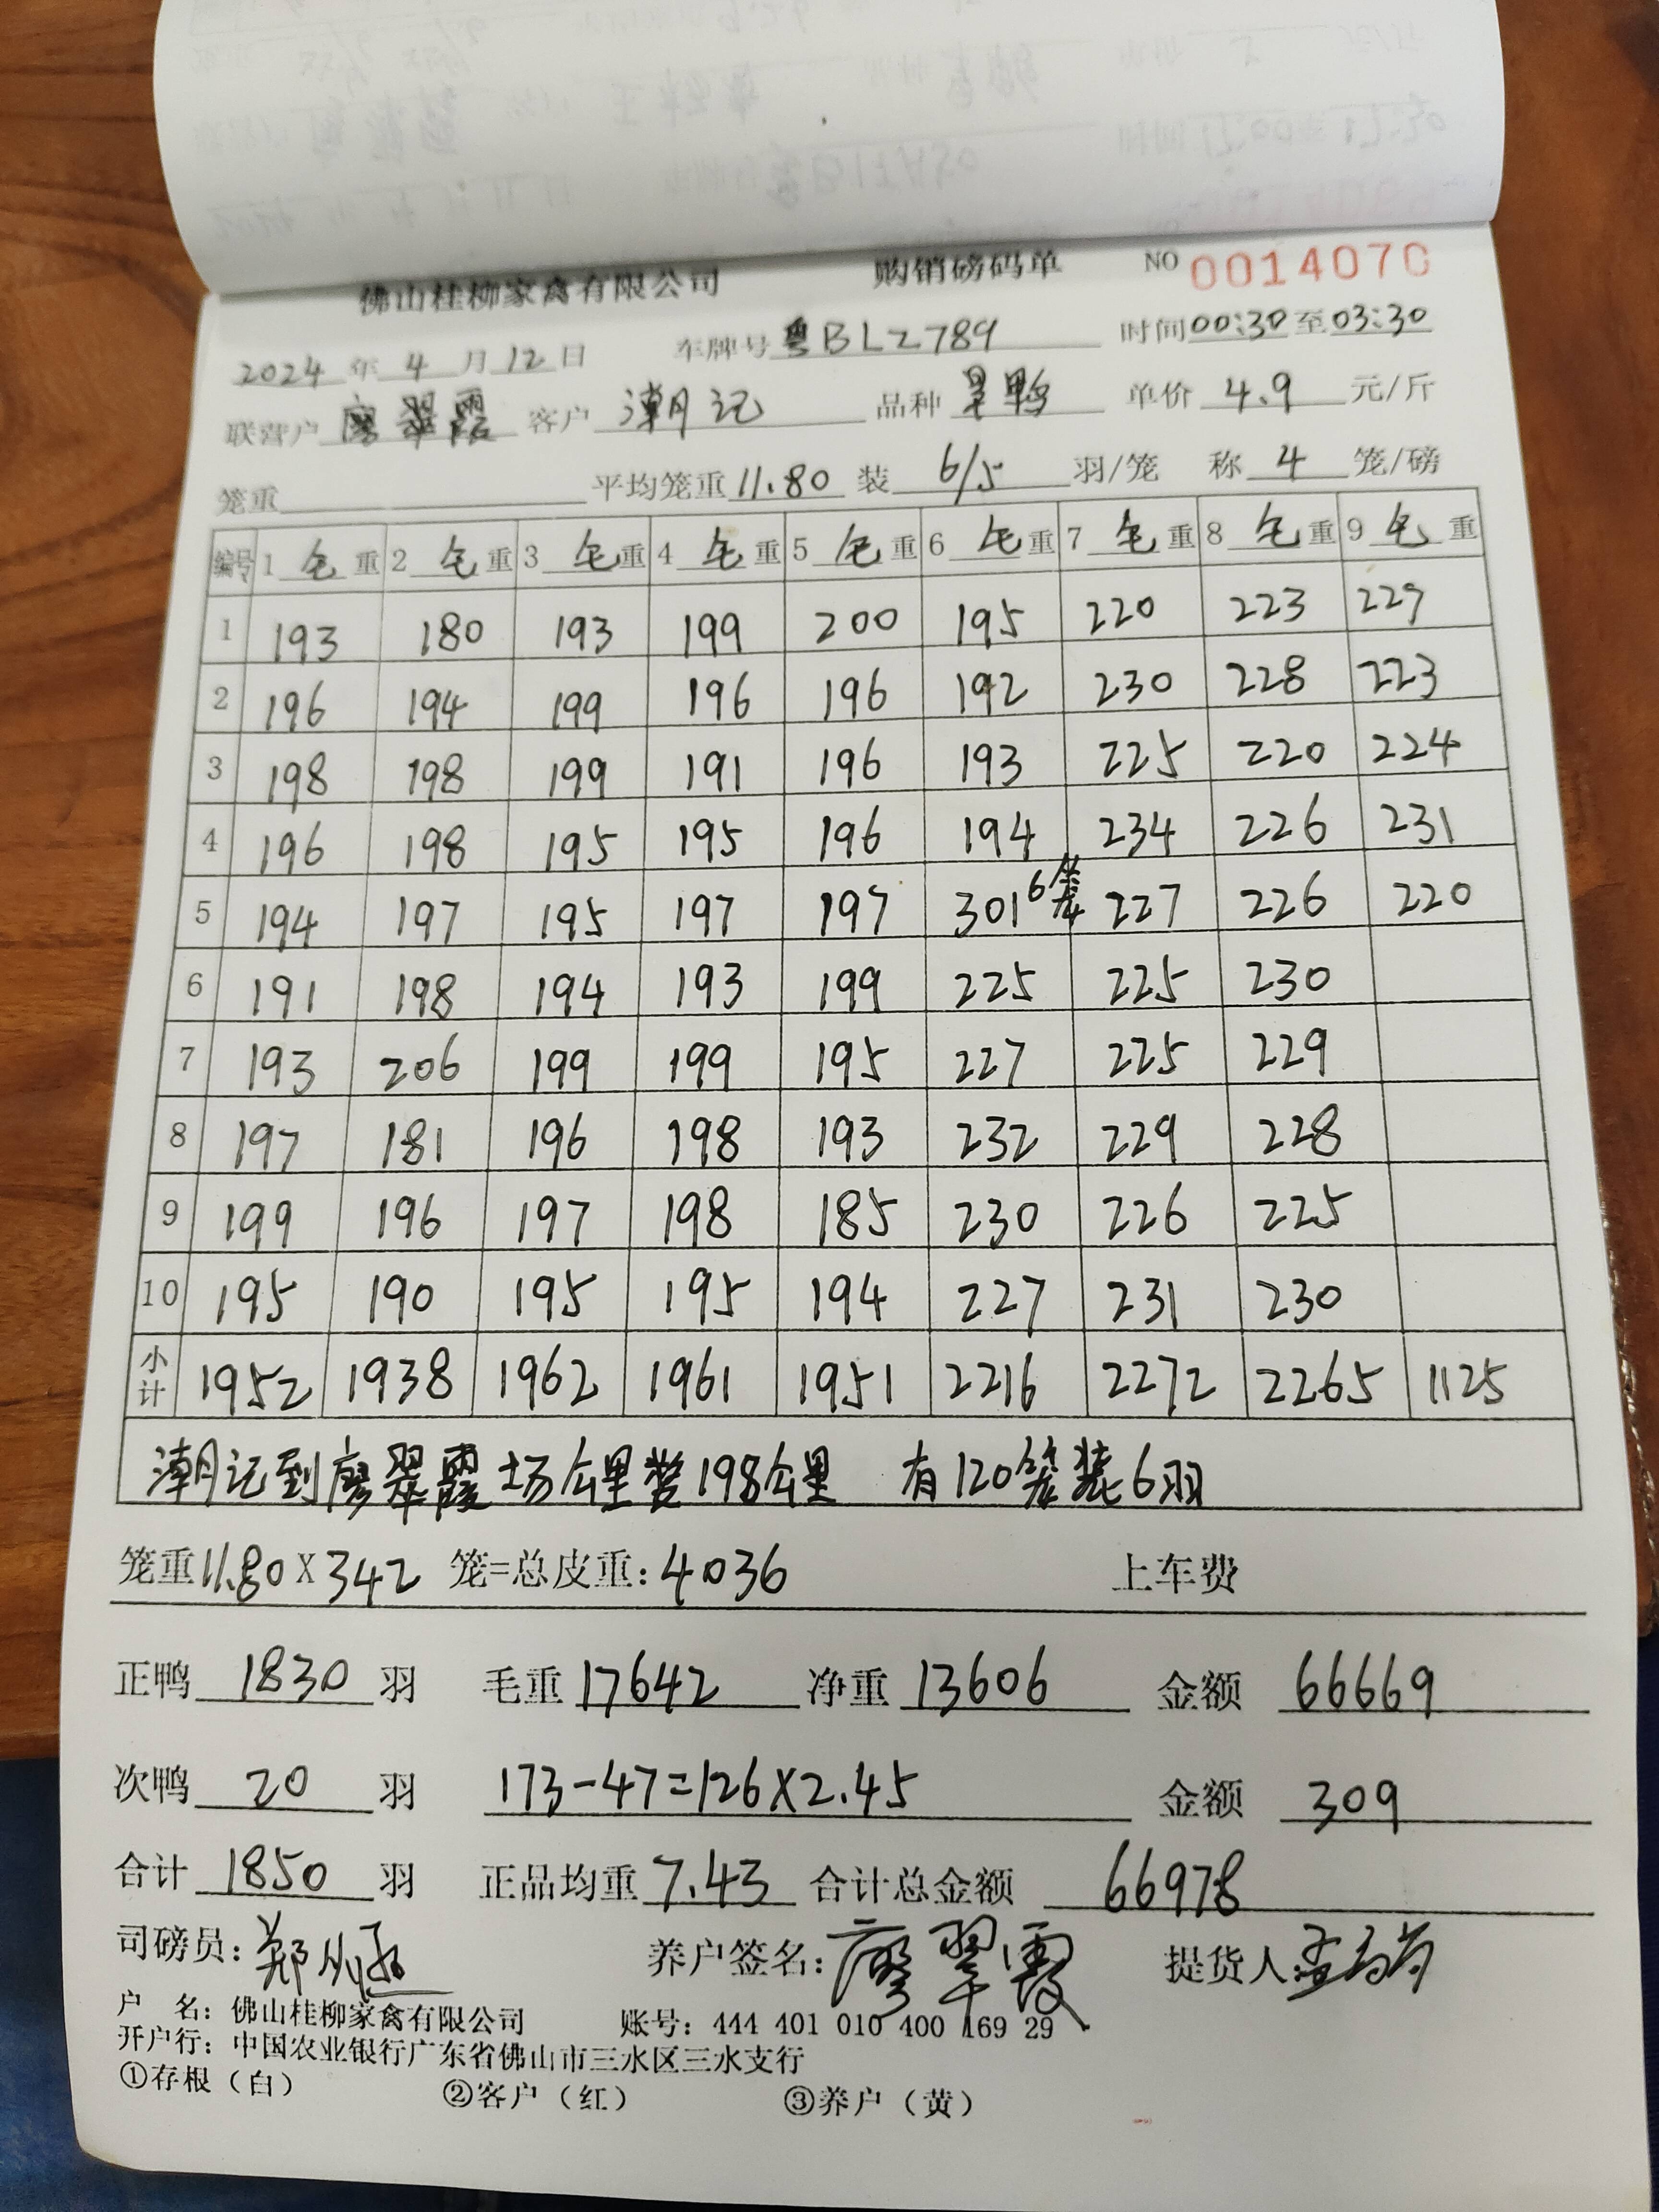 佛山桂柳家禽有限公司 购销磅码单 NO 0014070
2024 年 4 月 12 日 车牌号 粤BLZ789 时间 00:30 至 03:30
联营户 廖翠霞 客户 潮记 品种 旱鸭 单价 4.9 元/斤
笼重 平均笼重 11.80 装 6/5 羽/笼 称 4 笼/磅
编号 1 毛 重 2 毛 重 3 毛 重 4 毛 重 5 毛 重 6 毛 重 7 毛 重 8 毛 重 9 毛 重
1 193 180 193 199 200 195 220 223 229
2 196 194 199 196 196 192 230 228 223
3 198 198 199 191 196 193 225 220 224
4 196 198 195 195 196 194 234 226 231
5 194 197 195 197 197 301 6笼 227 226 220
6 191 198 194 193 199 225 225 230
7 193 206 199 199 195 227 225 229
8 197 181 196 198 193 232 229 228
9 199 196 197 198 185 230 226 225
10 195 190 195 195 194 227 231 230
小计 1952 1938 1962 1961 1951 2216 2272 2265 1125
潮记到廖翠霞场公里数198公里 有120笼装6羽
笼重 11.80 X 342 笼=总皮重: 4036 上车费
正鸭 1830 羽 毛重 17642 净重 13606 金额 66669
次鸭 20 羽 173-47=126X2.45 金额 309
合计 1850 羽 正品均重 7.43 合计总金额 66978
司磅员: 郑 养户签名: 廖翠霞 提货人
户 名: 佛山桂柳家禽有限公司 账号: 444 401 010 400 169 29
开户行: 中国农业银行广东省佛山市三水区三水支行
①存根（白） ②客户（红） ③养户（黄）